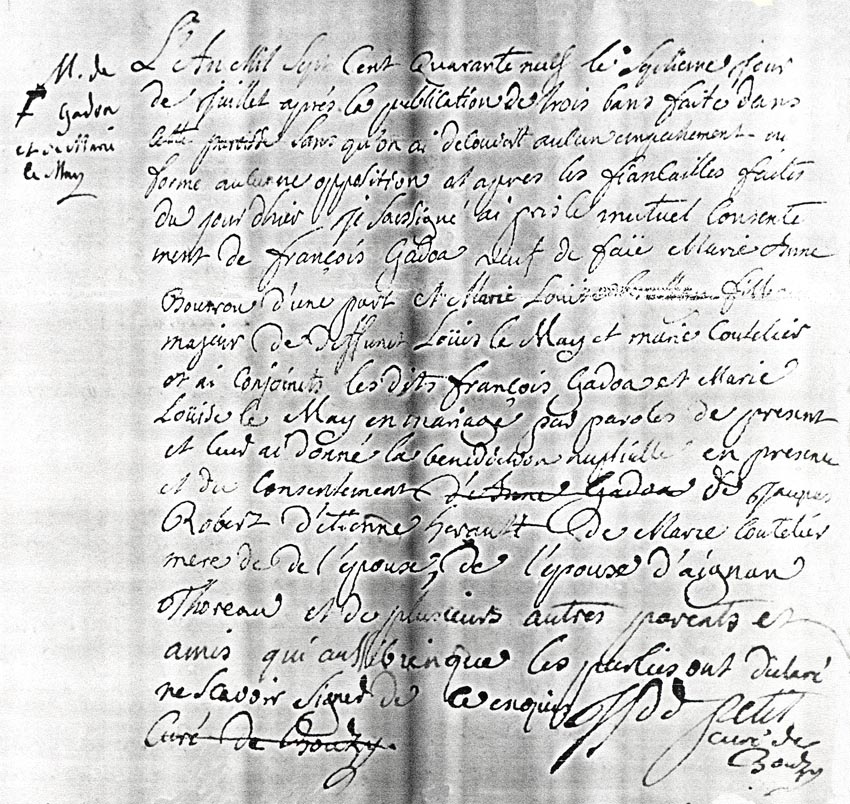 M. de
F Gadoa
et de Marie
le May
L'An Mil Sept Cent Quarante neuf le septieme jour
de Juillet aprés la publication de trois bans faite dans
cette paroisse sans qu'on ai decouvert aucun empechement ni
formé aucune opposition et apres les fiancailles faites
du jour d'hier je soussigné ai pris le mutuel Consente
ment de françois Gadoa veuf de feüe Marie Anne
Bourrou d'une part et Marie Louise fille
majeur de deffunct Loüis le May et marie Coutelier
et ai Conjoincts les dits françois Gadoa et Marie
Loüise le May en mariage par paroles de present
et leur ai donné la benediction nuptialle en presence
et du Consentement d'Anne Gadoa de Jacques
Robert d'étienne herault de Marie Coutelier
mere de de l'épouse, de l'épouse d'aignan
Thoreau et de plusieurs autres parents et
amis qui aussibien que les parties ont declaré
ne Scavoir signer de ce enquis
Curé de Bouzy.
Petit
curé de
Bouzy